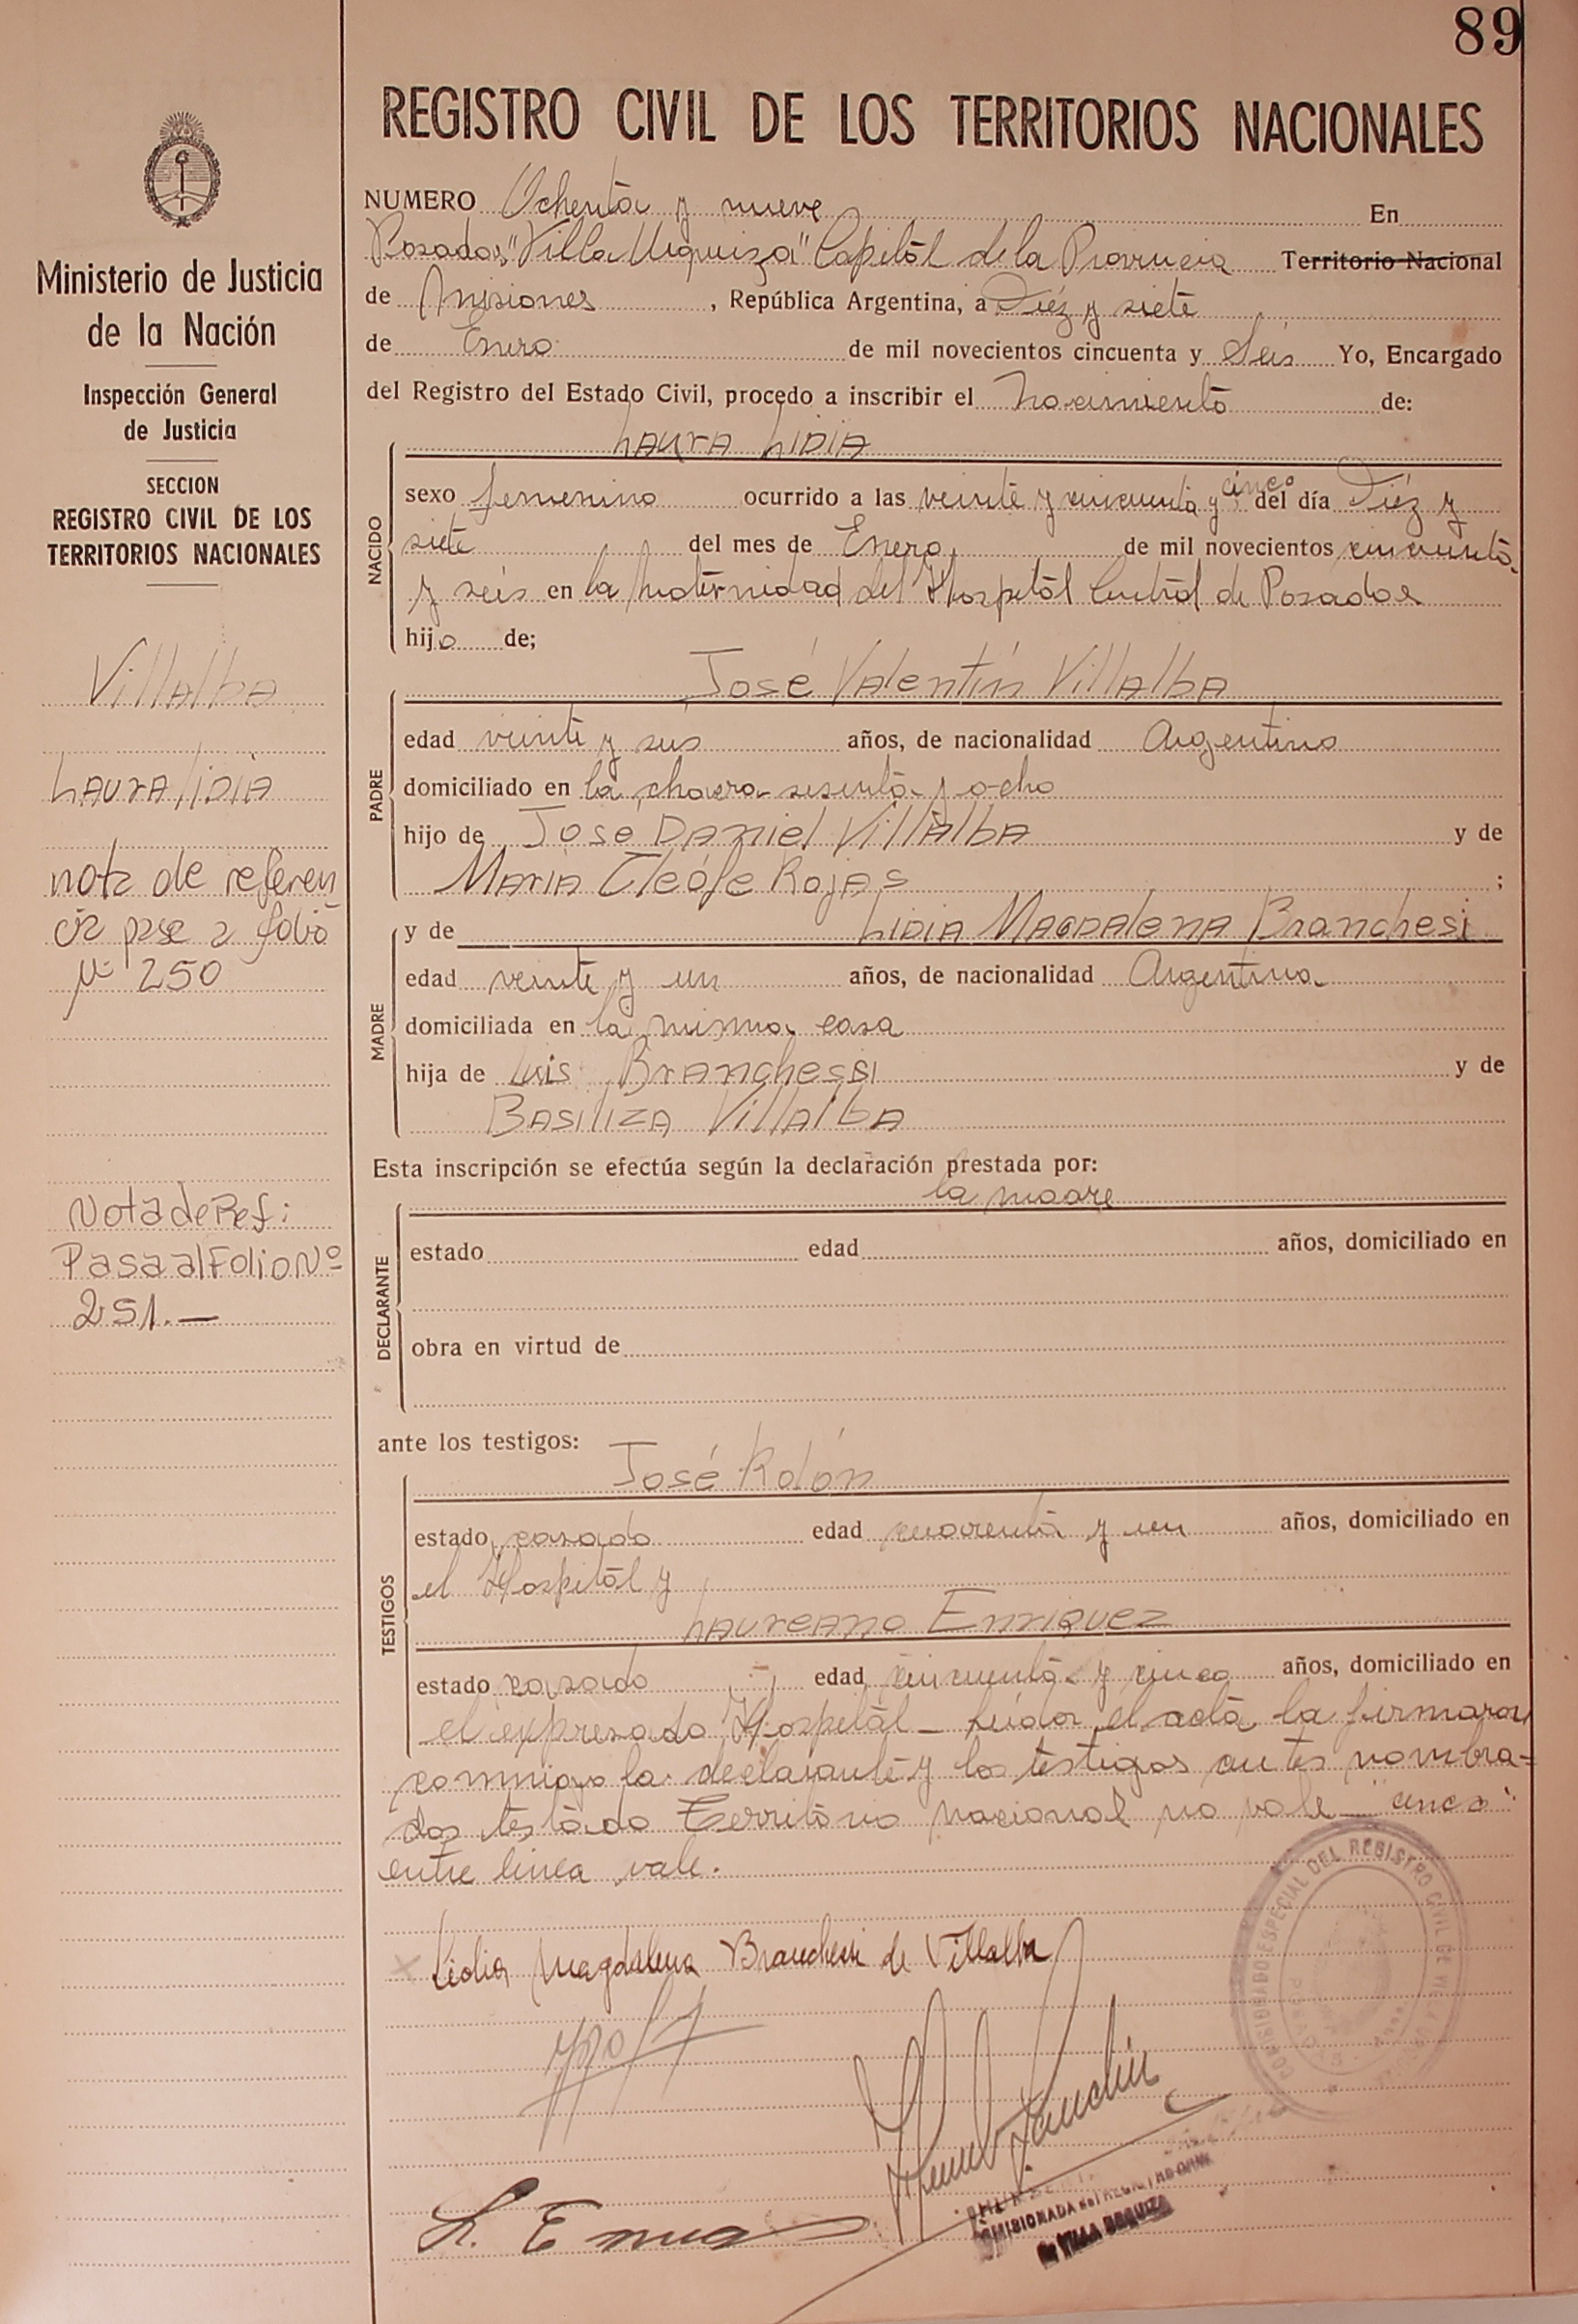 89
REGISTRO CIVIL DE LOS TERRITORIOS NACIONALES
NUMERO Ochenta y nueve En
Posadas "Villa Urquiza" Capital de la Provincia Territorio Nacional
de Misiones, República Argentina, a Diéz y siete
de Enero de mil novecientos cincuenta y Seis Yo, Encargado
del Registro del Estado Civil, procedo a inscribir el nacimiento de:
LAURA LIDIA
NACIDO
sexo femenino ocurrido a las veinte y cincuenta y cinco del día Diéz y
siete del mes de Enero de mil novecientos cincuenta
y seis en la Maternidad del Hospital Central de Posadas
hija de;
José Valentín Villalba
PADRE
edad veinte y seis años, de nacionalidad Argentino
domiciliado en la chacra sesenta y ocho
hijo de José Daniel Villalba y de
María Cleófe Rojas ;
MADRE
y de Lidia Magdalena Branchesi
edad veinte y un años, de nacionalidad Argentina
domiciliada en la misma casa
hija de Luis Branchessi y de
Basiliza Villalba
Esta inscripción se efectúa según la declaración prestada por:
la madre
DECLARANTE
estado edad años, domiciliado en
obra en virtud de
ante los testigos:
José Rolón
TESTIGOS
estado casado edad cuarenta y un años, domiciliado en
el Hospital y
Laureano Enriquez
estado casado edad cincuenta y cinco años, domiciliado en
el expresado Hospital - Leída el acta la firmaron
conmigo la declarante y los testigos antes nombra=
dos testado Territorio nacional no vale - "cinco"
entre linea vale.
Lidia Magdalena Branchesi de Villalba
L. E
COMISIONADO ESPECIAL DEL REGISTRO CIVIL DE VILLA URQUIZA
COMISIONADA del REGISTRO CIVIL
de VILLA URQUIZA
Ministerio de Justicia
de la Nación
Inspección General
de Justicia
SECCION
REGISTRO CIVIL DE LOS
TERRITORIOS NACIONALES
Villalba
Laura Lidia
nota de referen
cia pase a folio
Nº 250
Nota de Ref:
Pasa al Folio Nº
251.-